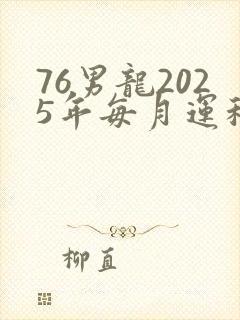 76男龍202
5年每月運程
柳直